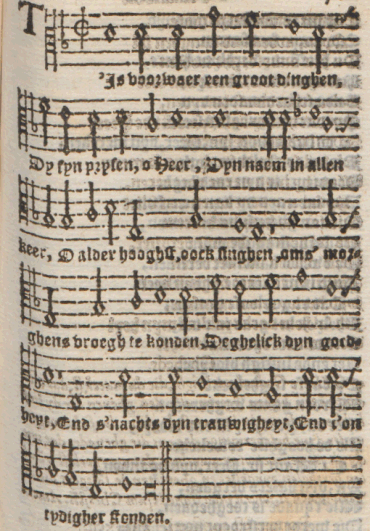 T
'Is voorwaer een groot dinghen,
Dy syn prysen, o Heer, Dyn naem in allen
keer, O alder hooghst, oock singhen, oms' mor-
ghens vroegh te konden, Deghelick dyn goed-
heyt, End s'nachts dyn trauwigheyt, End t'on
tydigher stonden.